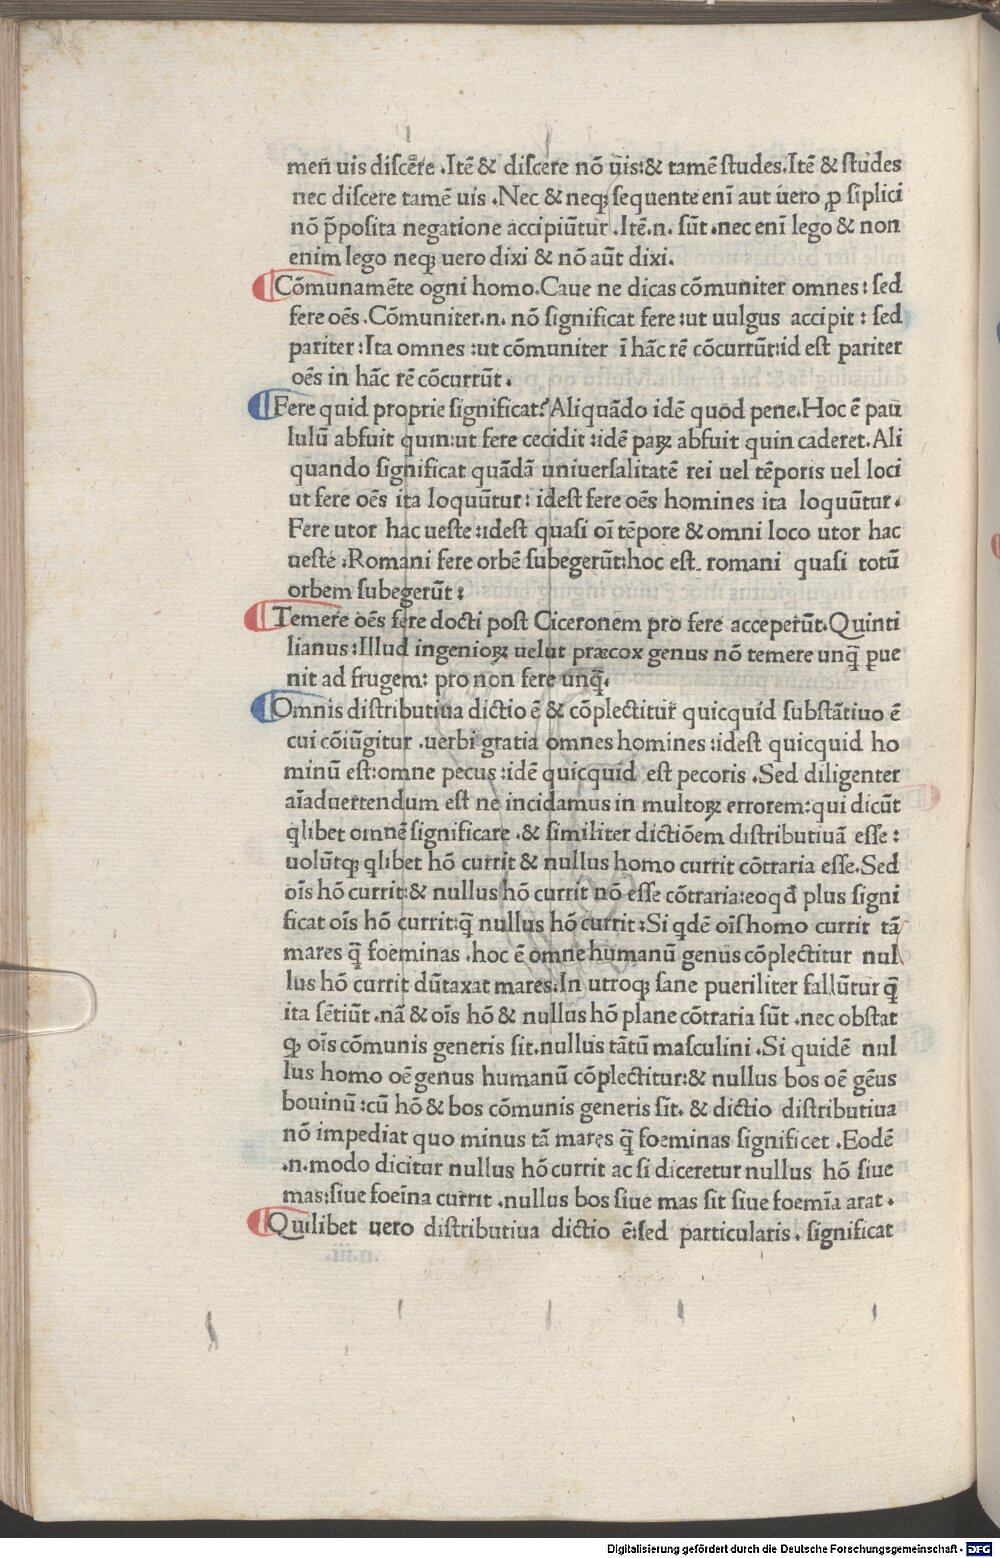 meñ uis diſcere .Itē & diſcere nō uis:& tamē ſtudes.Itē & ſtudes
nec diſcere tamē uis .Nec & neqꝫ ſequente enī aut uero ꝓ ſiplici
nō p̄poſita negatione accipiūtur .Itē.n. ſūt .nec enī lego & non
enim lego neqꝫ uero dixi & nō aūt dixi.
Cōmunamēte ogni homo.Caue ne dicas cōmuniter omnes: ſed
fere oēs .Cōmuniter.n. nō ſignificat fere:ut uulgus accipit: ſed
pariter:Ita omnes :ut cōmuniter ī hāc rē cōcurrūt:id eſt pariter
oēs in hāc rē cōcurrūt.
Fere quid proprie ſignificat?Aliquādo idē quod pene.Hoc ē pau
lulū abfuit quin:ut fere cecidit :idē paꝝ abfuit quin caderet.Ali
quando ſignificat quādā uniuerſalitatē rei uel tēporis uel loci
ut fere oēs ita loquūtur: ideſt fere oēs homines ita loquūtur.
Fere utor hac ueſte:ideſt quaſi oī tēpore & omni loco utor hac
ueſte :Romani fere orbē ſubegerūt:hoc eſt romani quaſi totū
orbem ſubegerūt:
Temere oēs fere docti poſt Ciceronem pro fere acceperūt.Quinti
lianus:Illud ingenioꝝ uelut præcox genus nō temere unq̄ ꝑue
nit ad frugem: pro non fere unq̄.
Omnis diſtributiua dictio ē & cōplectitur quicquid ſubſtātiuo ē
cui cōiūgitur .uerbi gratia omnes homines :ideſt quicquid ho
minū eſt:omne pecus :idē quicquid eſt pecoris .Sed diligenter
aīaduertendum eſt ne incidamus in multoꝝ errorem:qui dicūt
qlibet omnē ſignificare .& ſimiliter dictiōem diſtributiuā eſſe:
uolūtqꝫ qlibet hō currit & nullus homo currit cōtraria eſſe.Sed
oīs hō currit:& nullus hō currit nō eſſe cōtraria:eoqđ plus ſigni
ficat oīs hō currit:q̄ nullus hō currit:Si qdē oīs homo currit tā
mares q̄ foeminas .hoc ē omne humanū genus cōplectitur nul
lus hō currit dūtaxat mares.In utroqꝫ ſane pueriliter fallūtur q̄
ita ſētiūt .nā & oīs hō & nullus hō plane cōtraria ſūt .nec obſtat
ꝙ oīs cōmunis generis ſit.nullus tātū maſculini .Si quidē nul
lus homo oē genus humanū cōplectitur:& nullus bos oē gēus
bouinū:cū hō & bos cōmunis generis ſit. & dictio diſtributiua
nō impediat quo minus tā mares q̄ foeminas ſignificet .Eodē
.n.modo dicitur nullus hō currit ac ſi diceretur nullus hō ſiue
mas:ſiue foeīna currit .nullus bos ſiue mas ſit ſiue foemīa arat.
Quilibet uero diſtributiua dictio ē:ſed particularis. ſignificat
Digitalisierung gefördert durch die Deutsche Forschungsgemeinschaft - DFG